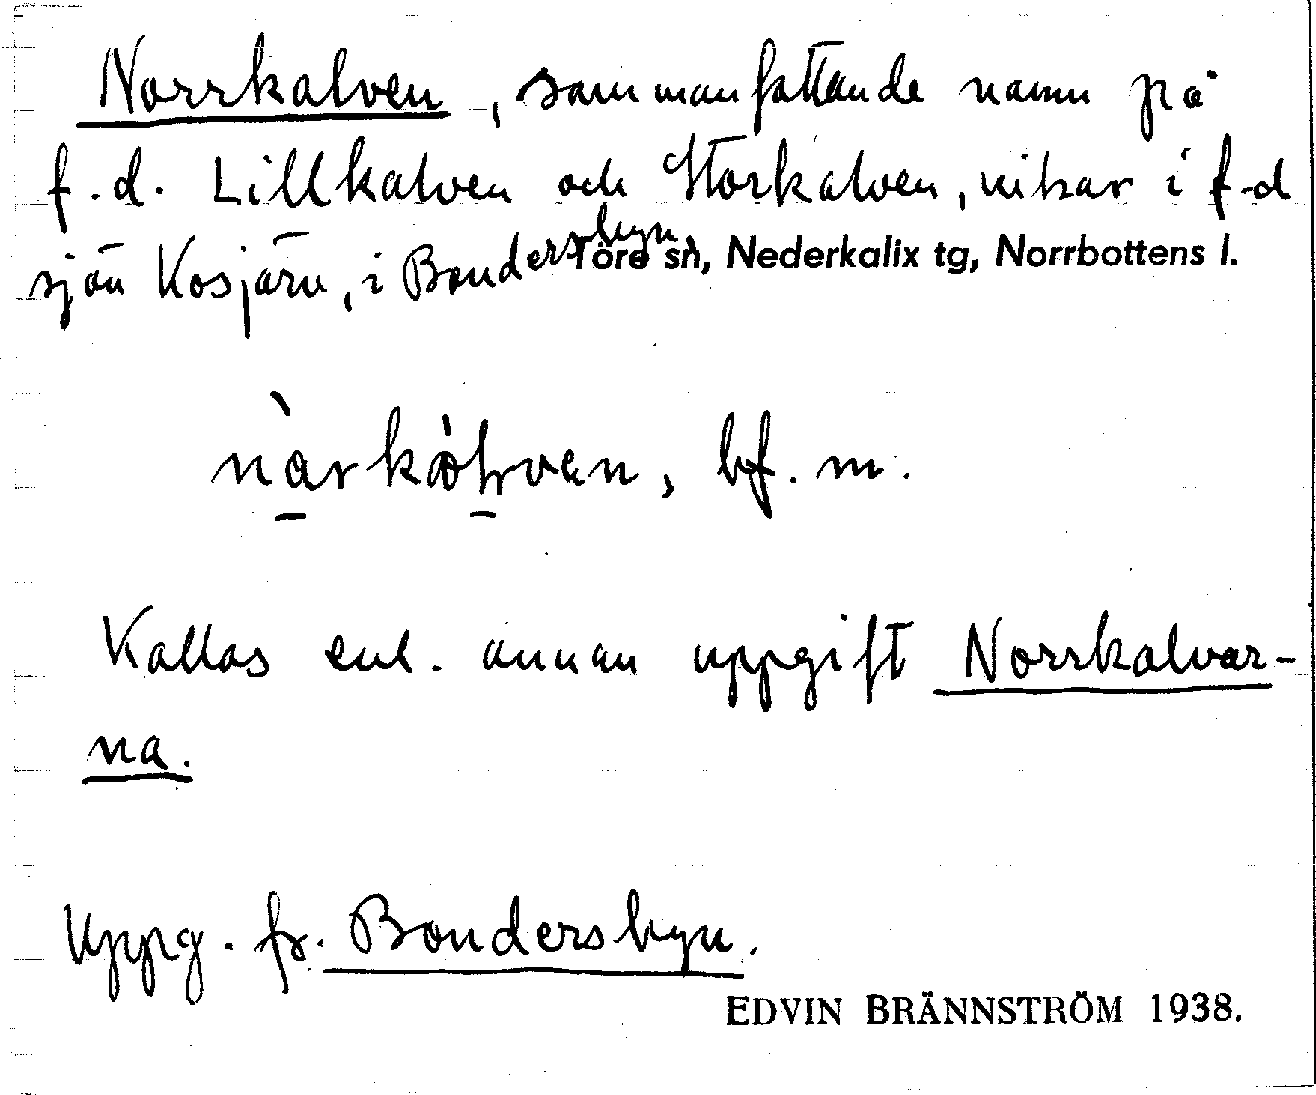 Norrkalven, sammanfattande namn på
f.d. Lillkalven och Storkalven, vikar i f.d
sjön Kosjärv, i Bondersbyn,
Töre sn, Nederkalix tg, Norrbottens l.
bf. m.
Kallas enl. annan uppgift Norrkalvar-
na.
Uppg. fr. Bondersbyn.
EDVIN BRÄNNSTRÖM 1938.